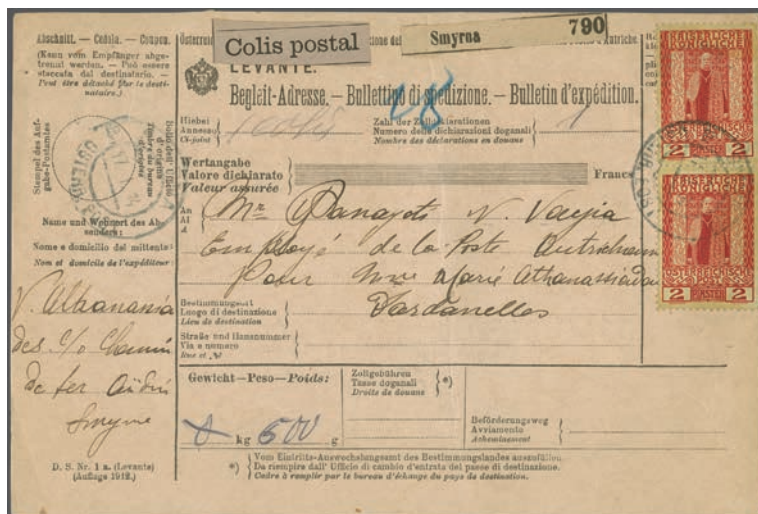 Abschnitt. — Cedola. — Coupon.
(Kann vom Empfänger abge-
trennt werden. — Può essere
staccata dal destinatario. —
Peut être détaché par le desti-
nataire.)
Stempel des Auf-
gabe-Postamtes
Bollo dell' Ufficio
d'origine
Timbre du bureau
d'origine
Name und Wohnort des Ab-
senders:
Nome e domicilio del mittente:
Nom et domicile de l'expéditeur:
V. Athanassia
des c/o Chemin
de fer Aïdin
Smyrne
D. S. Nr. 1 a. (Levante)
(Auflage 1912.)
Colis postal
Smyrna 790
LEVANTE.
Begleit-Adresse. — Bullettino di spedizione. — Bulletin d'expédition.
Hiebei
Annesso
Ci-joint
1 colis
Zahl der Zollerklärungen
Numero delle dichiarazioni doganali
Nombre des déclarations en douane
1
Wertangabe
Valore dichiarato
Valeur assurée
Francs
An
Al
A
Mr Panayoti N. Vayia
Employé de la Poste Autrichienne
Pour Mme Marie Athanassiadou
Bestimmungsort
Luogo di destinazione
Lieu de destination
Dardanelles
Straße und Hausnummer
Via e numero
Rue et №
Gewicht—Peso—Poids:
kg 500 g
Zollgebühren
Tasse doganali
Droits de douane
*)
Beförderungsweg
Avviamento
Acheminement
*) Vom Eintritts-Auswechslungsamt des Bestimmungslandes auszufüllen.
Da riempire dall' Ufficio di cambio d'entrata del paese di destinazione.
Cadre à remplir par le bureau d'échange du pays de destination.
KAISERLICHE
KÖNIGLICHE
2 PIASTER 2
KAISERLICHE
KÖNIGLICHE
ÖSTERREICHISCHE
POST
2 PIASTER 2